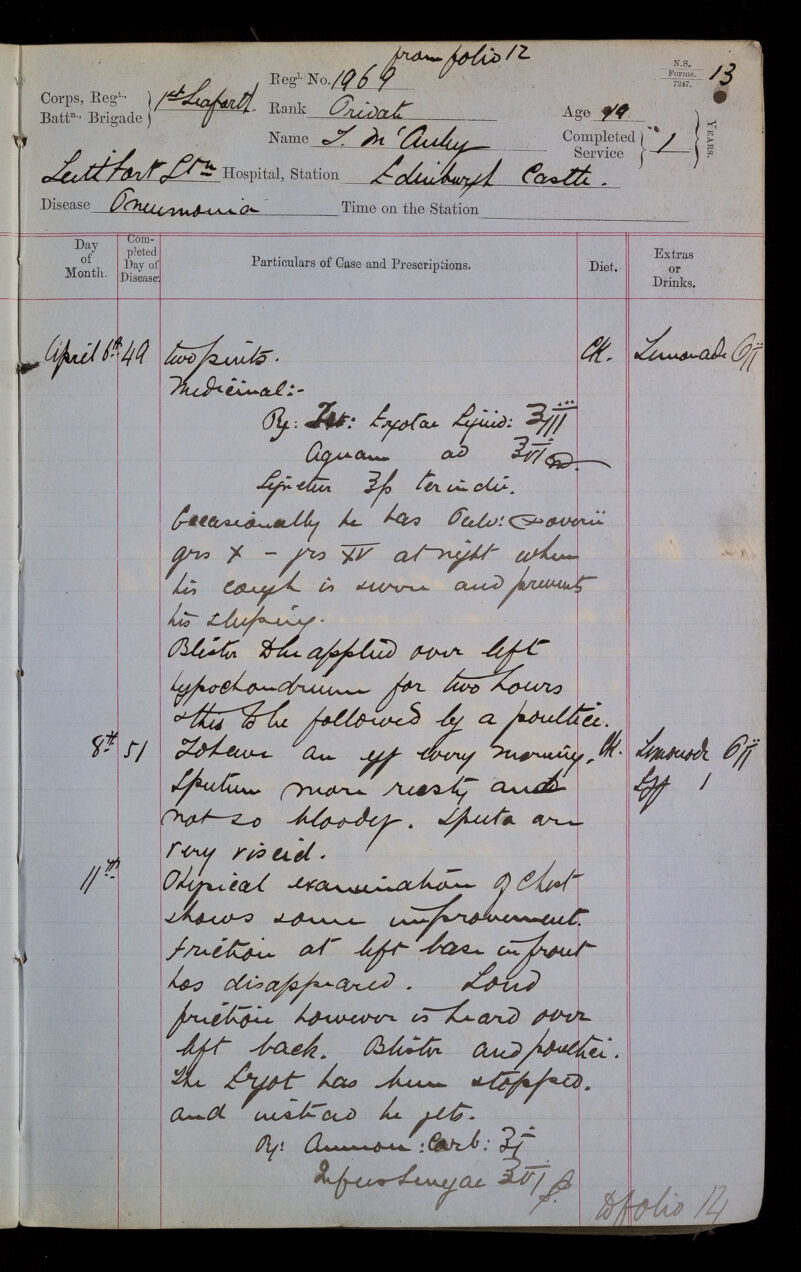 from folio 12
N.S.
Forms.
7247.
13
Corps, Regt.
Battn., Brigade
1st Seaforth.
Regl. No. 1969
Rank Private
Age 19
Name J. McAuley
Completed Service 1 YEARS.
Leith Fort Stn Hospital, Station Edinburgh Castle.
Disease Pneumonia Time on the Station
Day of Month.
Completed Day of Disease.
Particulars of Case and Prescriptions.
Diet.
Extras or Drinks.
April 6th 49 two pints. Ch. Lemonade Oii
Medicinal:-
Rx: Ext: Ergotae Liquid: ʒiii
Aquam ad ℥vi
Signetur ℥ss ter in die.
Occasionally he has Pulv: Doverii
grs X - grs XV at night when
his cough is severe and prevents
his sleeping.
Blister to be applied over left
hypochondrium for two hours
& this to be followed by a poultice.
8th 51 To have an egg every morning. Ch. Lemonade Oii
Sputum more rusty and Egg 1
not so bloody. Sputa are
very viscid.
11th Physical examination of Chest
shows some improvement.
Friction at left base in front
has disappeared. Loud
friction however is heard over
left back. Blister and poultice.
The Ergot has been stopped.
and instead he gets.
Rx: Ammon: Carb: ʒi
Infus Senegae ℥vi
to folio 14